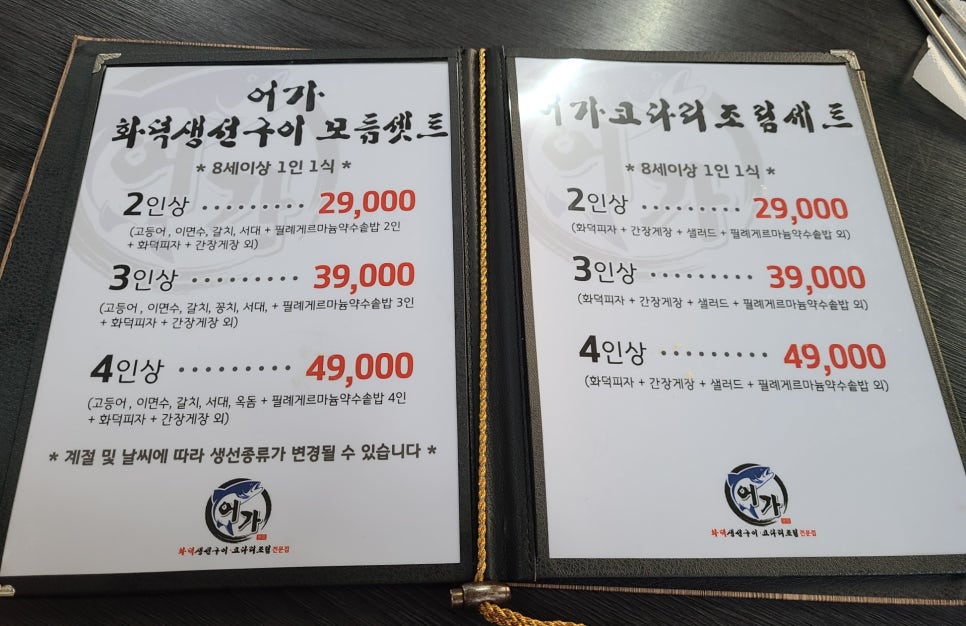 어가
화덕생선구이 모듬셋트
* 8세이상 1인 1식 *
2인상 ········· 29,000
(고등어 , 이면수, 갈치, 서대 + 필례게르마늄약수솥밥 2인
+ 화덕피자 + 간장게장 외)
3인상 ·········· 39,000
(고등어, 이면수, 갈치, 꽁치, 서대, + 필례게르마늄약수솥밥 3인
+ 화덕피자 + 간장게장 외)
4인상 ·········· 49,000
(고등어 , 이면수, 갈치, 서대, 옥돔 + 필례게르마늄약수솥밥 4인
+ 화덕피자 + 간장게장 외)
* 계절 및 날씨에 따라 생선종류가 변경될 수 있습니다 *
어가
화덕생선구이·코다리조림전문점
어가코다리조림세트
* 8세이상 1인 1식 *
2인상 ·········· 29,000
(화덕피자 + 간장게장 + 샐러드 + 필례게르마늄약수솥밥 외)
3인상 ·········· 39,000
(화덕피자 + 간장게장 + 샐러드 + 필례게르마늄약수솥밥 외)
4인상 ·········· 49,000
(화덕피자 + 간장게장 + 샐러드 + 필례게르마늄약수솥밥 외)
어가
화덕생선구이·코다리조림전문점